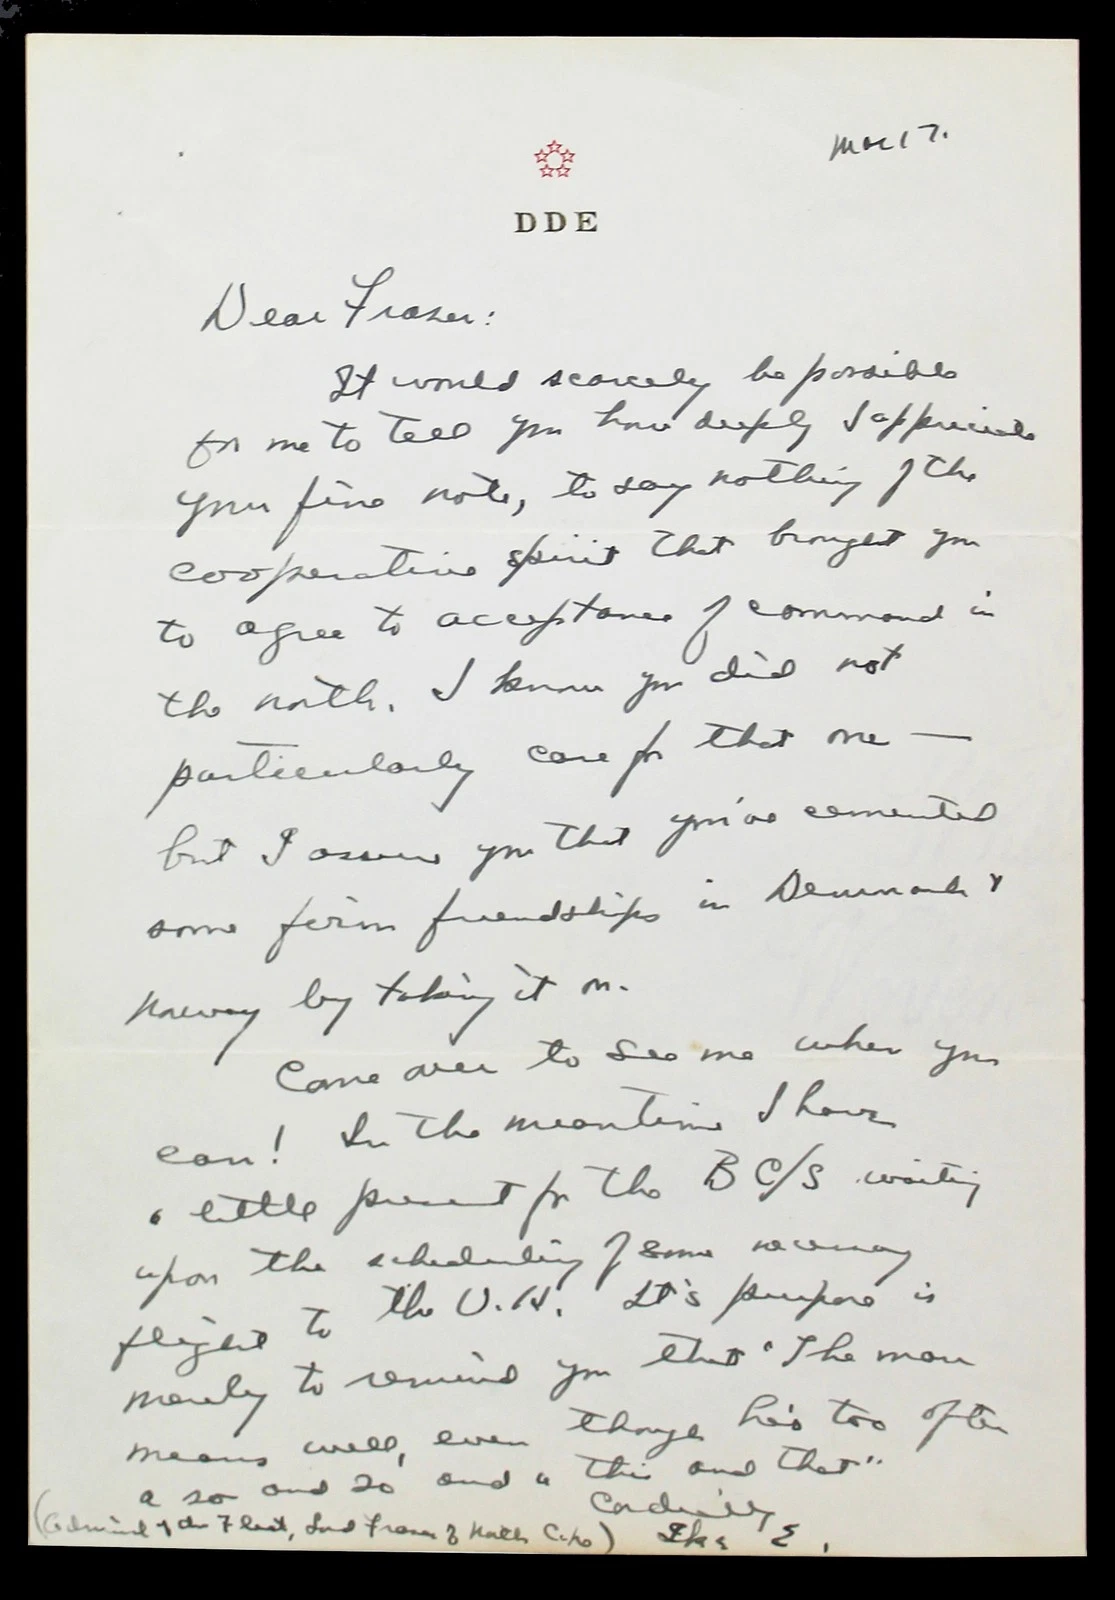 Mar 17.
DDE
Dear Fraser:
It would scarcely be possible
for me to tell you how deeply I appreciate
your fine note, to say nothing of the
cooperative spirit that brought you
to agree to acceptance of command in
the north. I know you did not
particularly care for that one —
but I assure you that you've cemented
some firm friendships in Denmark &
Norway by taking it on.
Come over to see me when you
can! In the meantime I have
a little present for the B C/S waiting
upon the scheduling of some necessary
flight to the U.K. It's purpose is
merely to remind you that "The man
means well, even though he's too often
a so and so and a "this and that".
Cordially
Ike E.
(Admiral of the Fleet, Lord Fraser of North Cape)